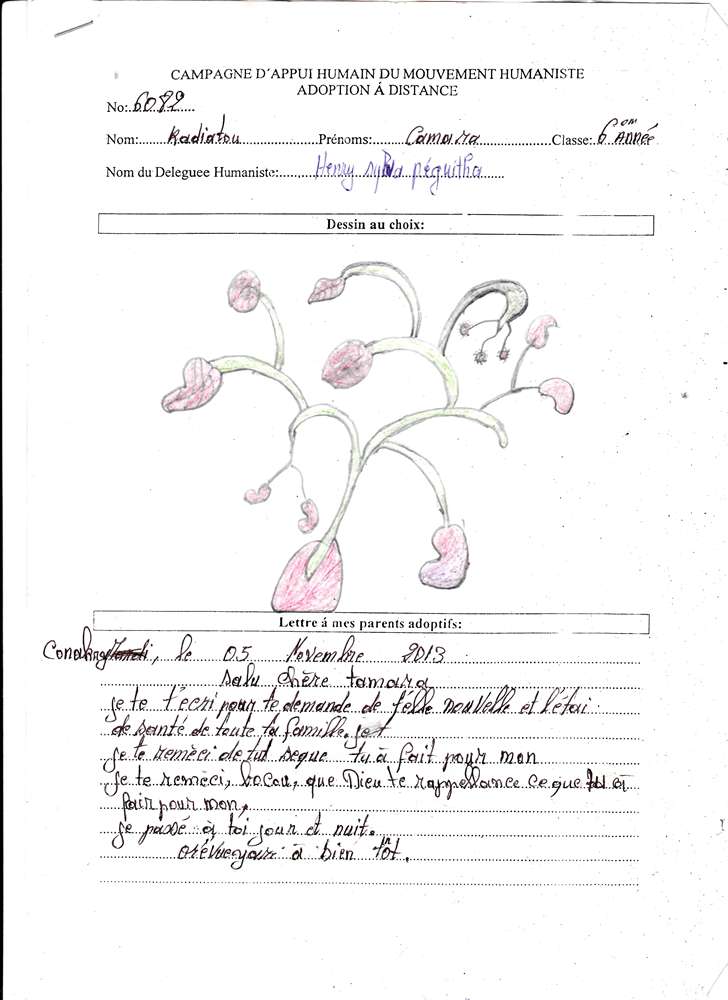 CAMPAGNE D'APPUI HUMAIN DU MOUVEMENT HUMANISTE
ADOPTION Á DISTANCE
No:..6082
Nom: Kadiatou Prénoms: Camara Classe: 6ème Année
Nom du Deleguee Humaniste: Henry sylvia péguitha
Dessin au choix:
Lettre á mes parents adoptifs:
Conakry, le 05 Novembre 2013
salu chère tamara
je te t'écri pour te demande de nouvelle et l'étai
de santé de toute ta famille.
je te remèci de tut seque tu à fait pour mon
je te remèci, bocou, que Dieu te ce que à
fair pour mon,
je passé à toi jour et nuit.
à bien tôt.